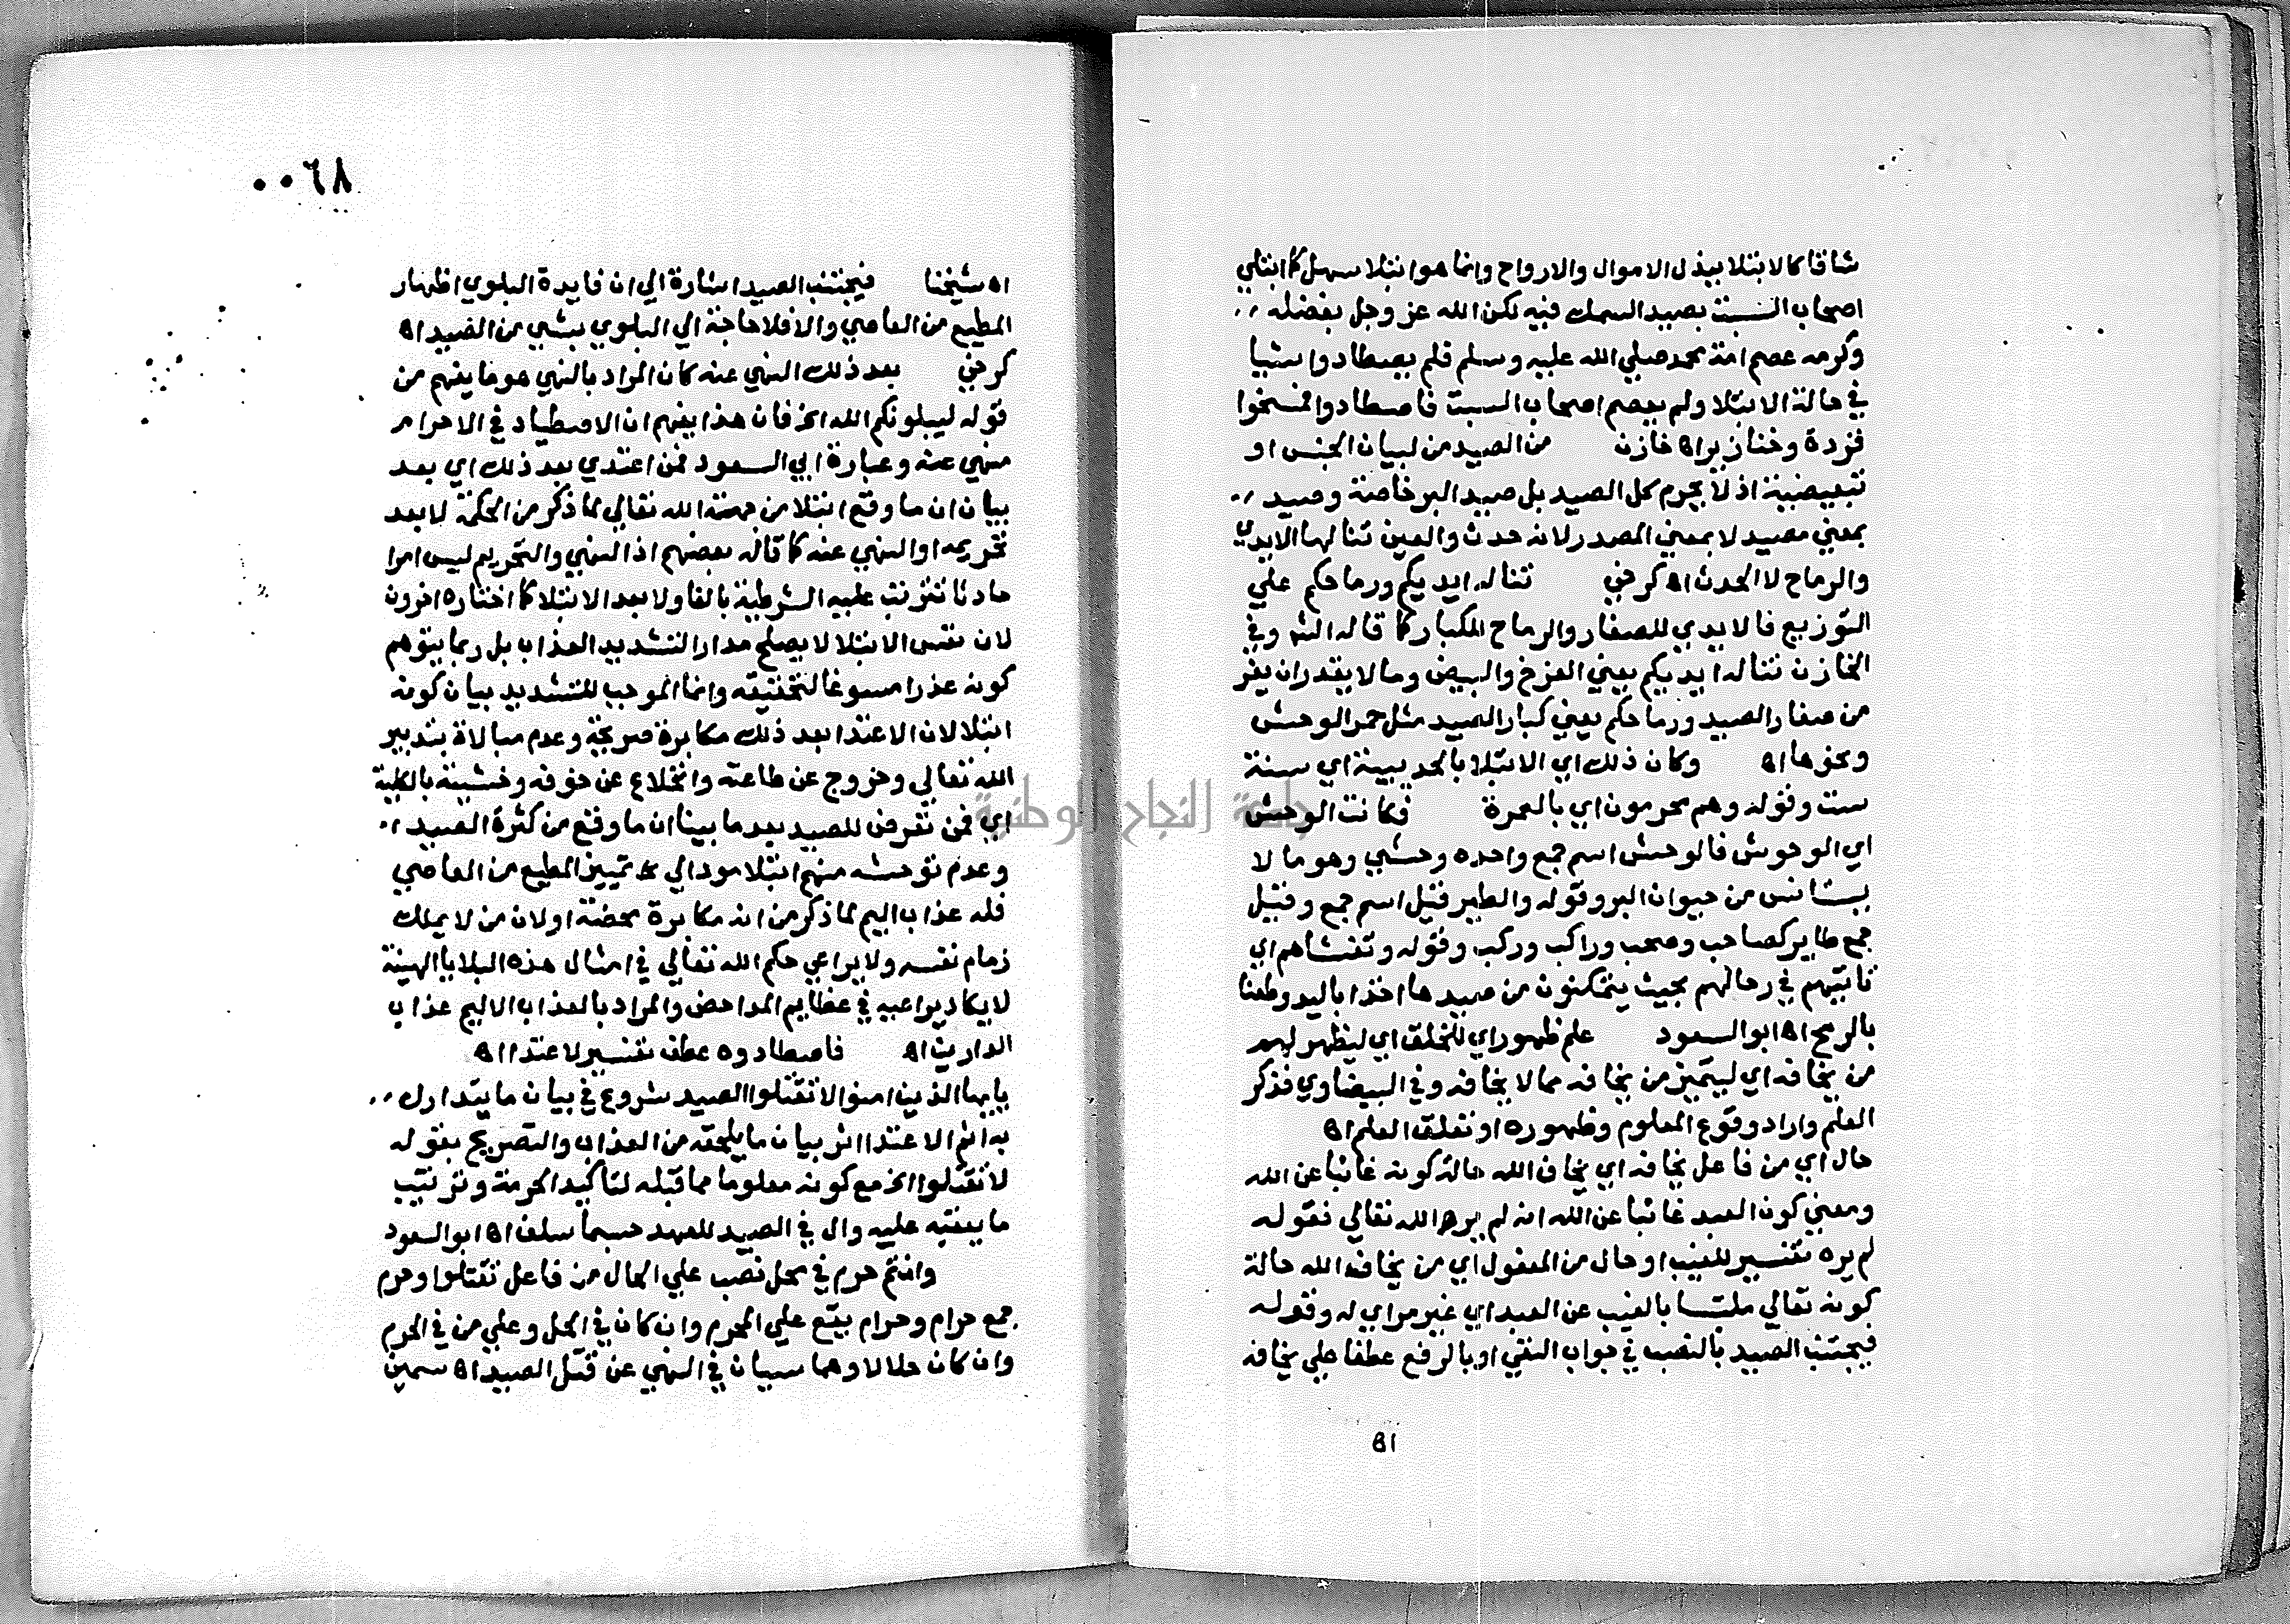 شاقا كالابتلا ببذل الاموال والارواح وانما هو ابتلا سهل كما ابتلي
اصحاب السبت بصيد السمك فيه لكن الله عز وجل بفضله
وكرمه عصم امة محمد صلي الله عليه وسلم فلم يصطادوا شيا
في حالة الابتلا ولم يعصم اصحاب السبت فاصطادوا فمسخوا
قردة وخنازير اه خازن من الصيد من لبيان الجنس او
تبعيضية اذ لا يحرم كل الصيد بل صيد البر خاصة وصيد
بمعني مصيد لا بمعني المصدر لانه حدث والعين تنالها الايدي
والرماح لا الحدث اه كرخي تناله ايديكم ورماحكم علي
التوزيع فالايدي للصغار والرماح للكبار كما قاله الشه وفي
الخازن تناله ايديكم يعني الفرخ والبيض وما لا يقدر ان يفر
من صغار الصيد ورماحكم يعني كبار الصيد مثل حمر الوحش
ونحوها اه وكان ذلك اي الابتلا بالحديبية اي سنة
ست وقوله وهم محرمون اي بالعمرة فكانت الوحش
اي الوحوش فالوحش اسم جمع واحده وحشي وهو ما لا
يستانس من حيوان البر وقوله والطير قيل اسم جمع وقيل
جمع طاير كصاحب وصحب وراكب وركب وقوله وتغشاهم اي
تاتيهم في رحالهم بحيث يتمكنون من صيدها اخذا باليد وطعنا
بالرمح اه ابو السعود علم ظهور اي للخلق اي ليظهر لهم
من يخافه اي ليتميز من يخافه مما لا يخافه وفي البيضاوي فذكر
العلم واراد وقوع المعلوم وظهوره او تعلق العلم اه
حال اي من فاعل يخافه اي يخاف الله حالة كونه غائبا عن الله
ومعني كون العبد غائبا عن الله انه لم ير الله تعالي فقوله
لم يره تفسير للغيب او حال من المفعول اي من يخاف الله حالة
كونه تعالي ملتبسا بالغيب عن العبد اي غير مراي له وقوله
فيجتنب الصيد بالنصب في جواب النفي او بالرفع عطفا علي يخافه
اه
٠٠٦٨
اه شيخنا فيجتنب الصيد اشارة الي ان فايدة البلوي اظهار
المطيع من العاصي والا فلا حاجة الي البلوي بشي من الصيد اه
كرخي بعد ذلك النهي عنه كان المراد بالنهي هو ما يفهم من
قوله ليبلونكم الله الخ فان هذا يفهم ان الاصطياد في الاحرام
منهي عنه وعبارة ابي السعود فمن اعتدي بعد ذلك اي بعد
بيان ان ما وقع ابتلا من جهة الله تعالي لما ذكر من الحكمة لا بعد
تحريمه او النهي عنه كما قاله بعضهم اذ النهي والتحريم ليس امرا
حادثا تترتب عليه الشرطية بالفا ولا بعد الابتلا كما اختاره اخرون
لان نفس الابتلا لا يصلح مدارا لتشديد العذاب بل ربما يتوهم
كونه عذرا مسوغا لتخفيفه وانما الموجب للتشديد بيان كونه
ابتلا لان الاعتدا بعد ذلك مكابرة صريحة وعدم مبالاة بتدبير
الله تعالي وخروج عن طاعته وانخلاع عن خوفه وخشيته بالكلية
اي فمن تعرض للصيد بعد ما بينا ان ما وقع من كثرة الصيد
وعدم توحشه منهم ابتلا مودالي تمييز المطيع من العاصي
فله عذاب اليم لما ذكر من انه مكابرة محضة او لان من لا يملك
زمام نفسه ولا يراعي حكم الله تعالي في امثال هذه البلايا الهينة
لا يكاد يراعيه في عظايم المداحض والمراد بالعذاب الاليم عذاب
الدارين اه فاصطاده عطف تفسير لاعتدا اه
يايها الذين امنوا لا تقتلوا الصيد شروع في بيان ما يتدارك
به اثم الاعتدا اثر بيان ما يلحقه من العذاب والتصريح بقوله
لا تقتلوا الخ مع كونه معلوما مما قبله لتاكيد الحرمة وترتيب
ما يعقبه عليه وال في الصيد للعهد حسبما سلف اه ابو السعود
وانتم حرم في محل نصب علي الحال من فاعل تقتلوا وحرم
جمع حرام وحرام يقع علي المحرم وان كان في الحل وعلي من في الحرم
وان كان حلالا وهما سيان في النهي عن قتل الصيد اه سمين
جامعة النجاح الوطنية